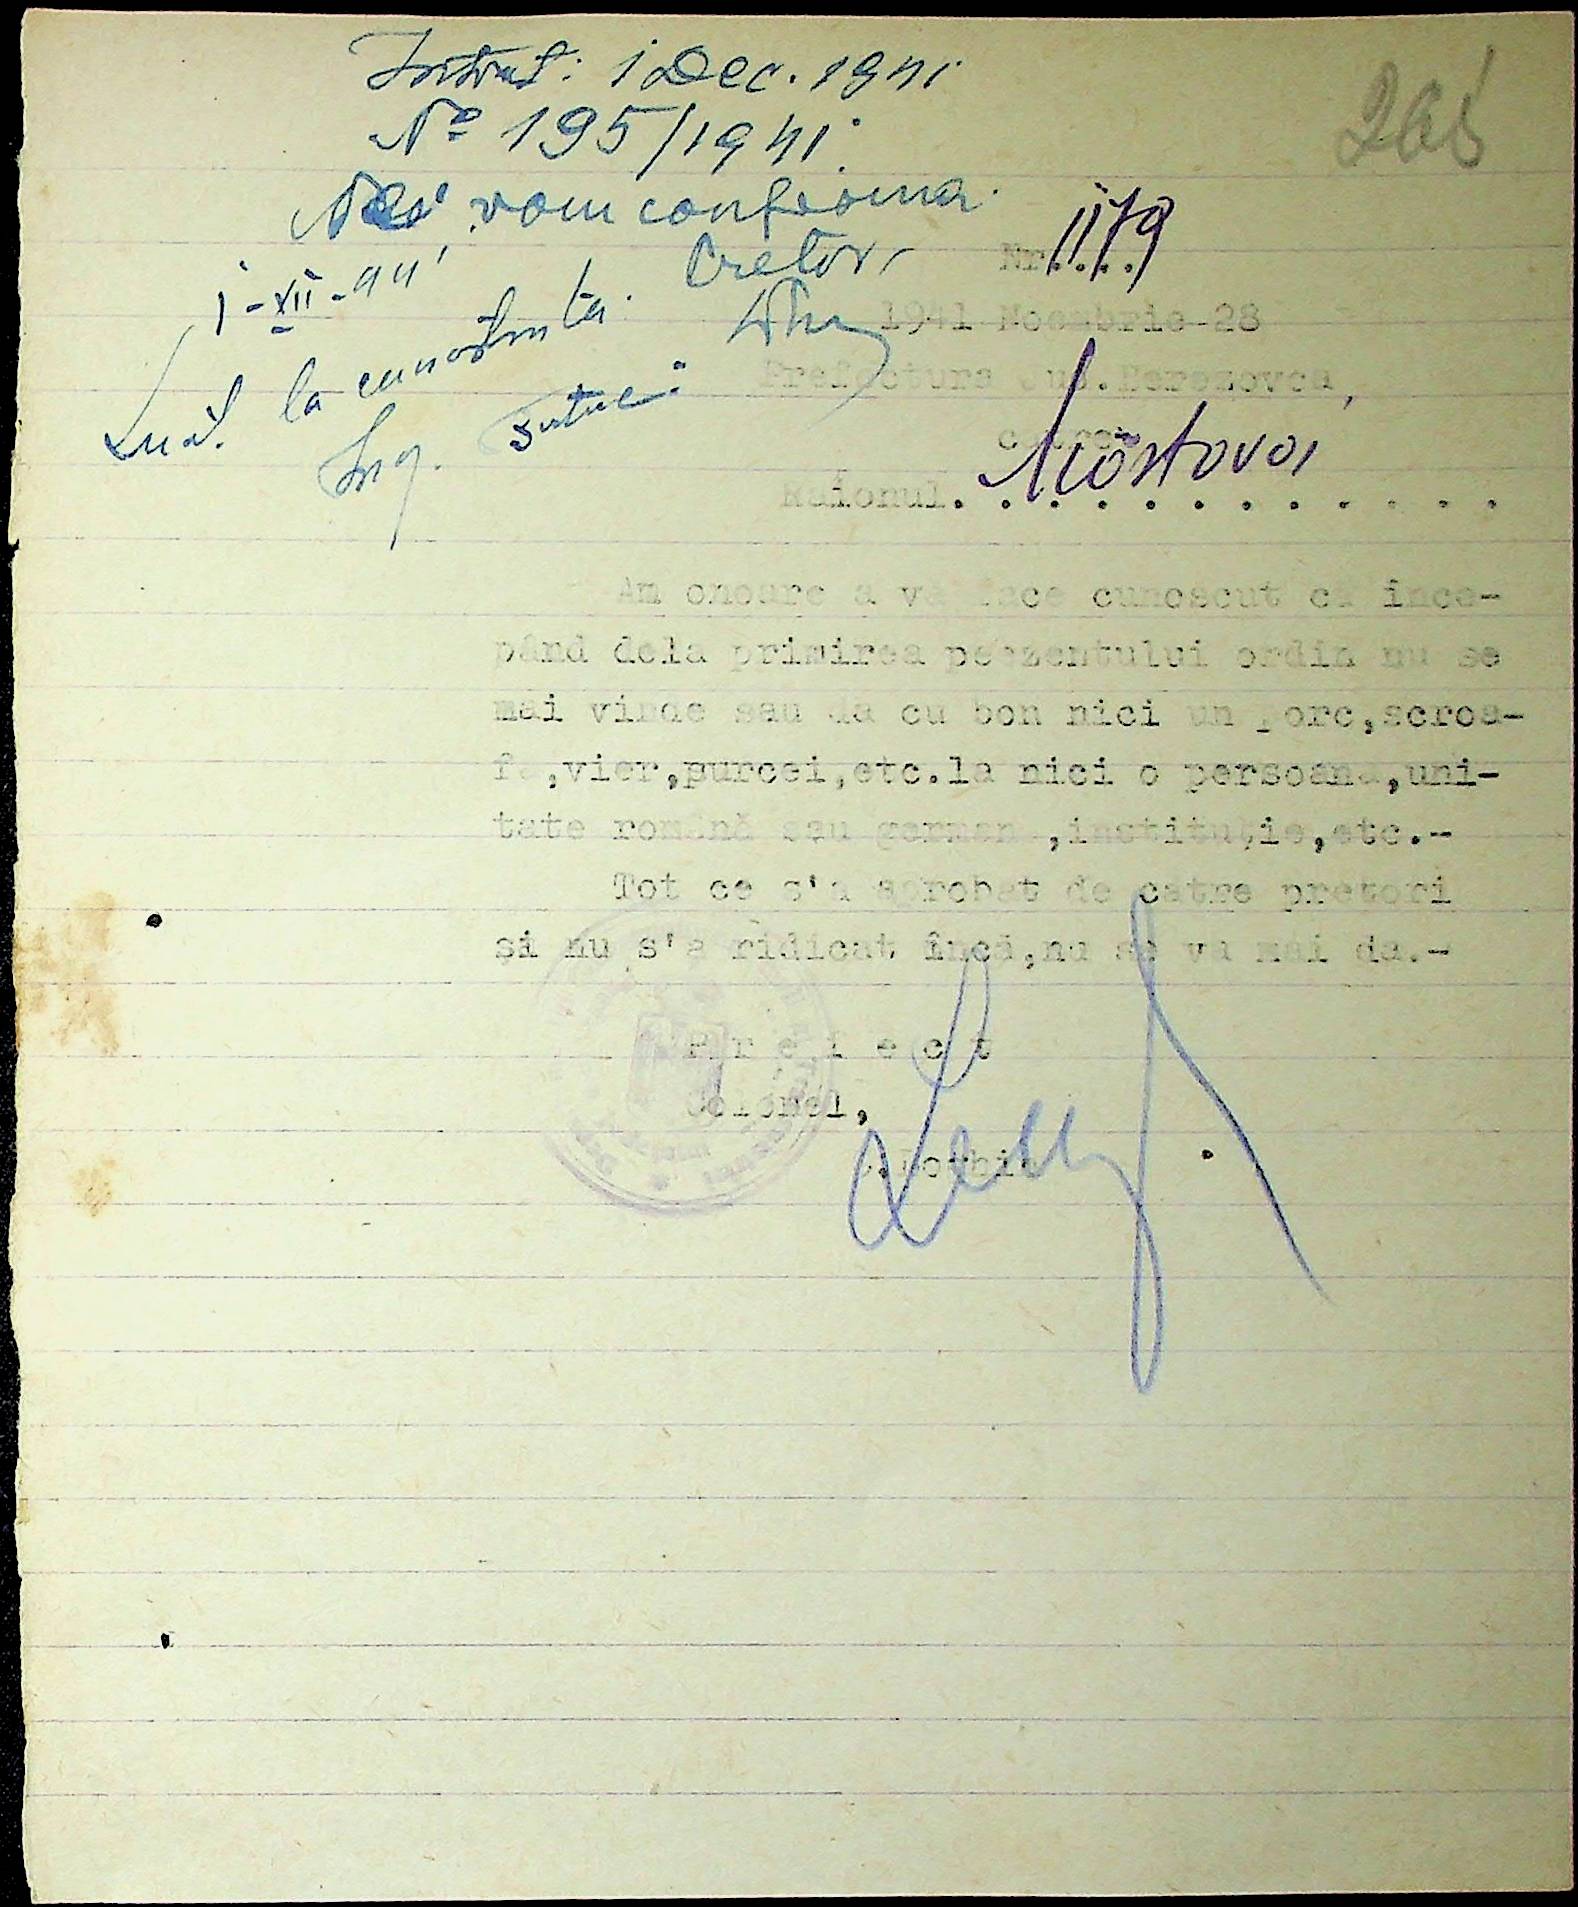 Intrat: 1 Dec. 1941
No 195/1941.
Ne vom conforma.
Pretor,
1-XII-941
Luat la cunostinta.
Ing.
Nr. 1179
1941 Noembrie-28
Prefectura Jud. Berezovca,
catre
Raionul. Mostovoi
Am onoare a va face cunoscut ca ince-
pând dela primirea pezentului ordin nu se
mai vinde sau da cu bon nici un porc,scroa-
fa,vier,purcei,etc.la nici o persoana,uni-
tate română sau german ,instituție,etc.-
Tot ce s'a aprobat de catre pretori
și nu s'a ridicat încă,nu se va mai da.-
P r e f e c t
Colonel,